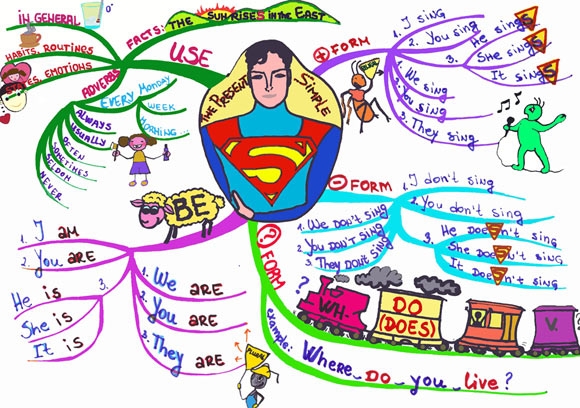 THE PRESENT SIMPLE
S
USE
IN GENERAL
FACTS: THE SUN RISES IN THE EAST
HABITS, ROUTINGS
EMOTIONS
ADVERBS
EVERY MONDAY
WEEK
MORNING...
ALWAYS
USUALLY
OFTEN
SOMETIMES
SELDOM
NEVER
+ FORM
1. I sing
2. You sing
3. He sings
She sings
It sings
1. We sing
2. You sing
3. They sing
- FORM
1. I don't sing
2. You don't sing
3. He doesn't sing
She doesn't sing
It doesn't sing
1. We don't sing
2. You don't sing
3. They don't sing
BE
1. I AM
2. You ARE
3. He is
She is
It is
1. We ARE
2. You ARE
3. They ARE
PLURAL
? FORM
?
WH-
DO
(DOES)
V.
example: Where DO you live?